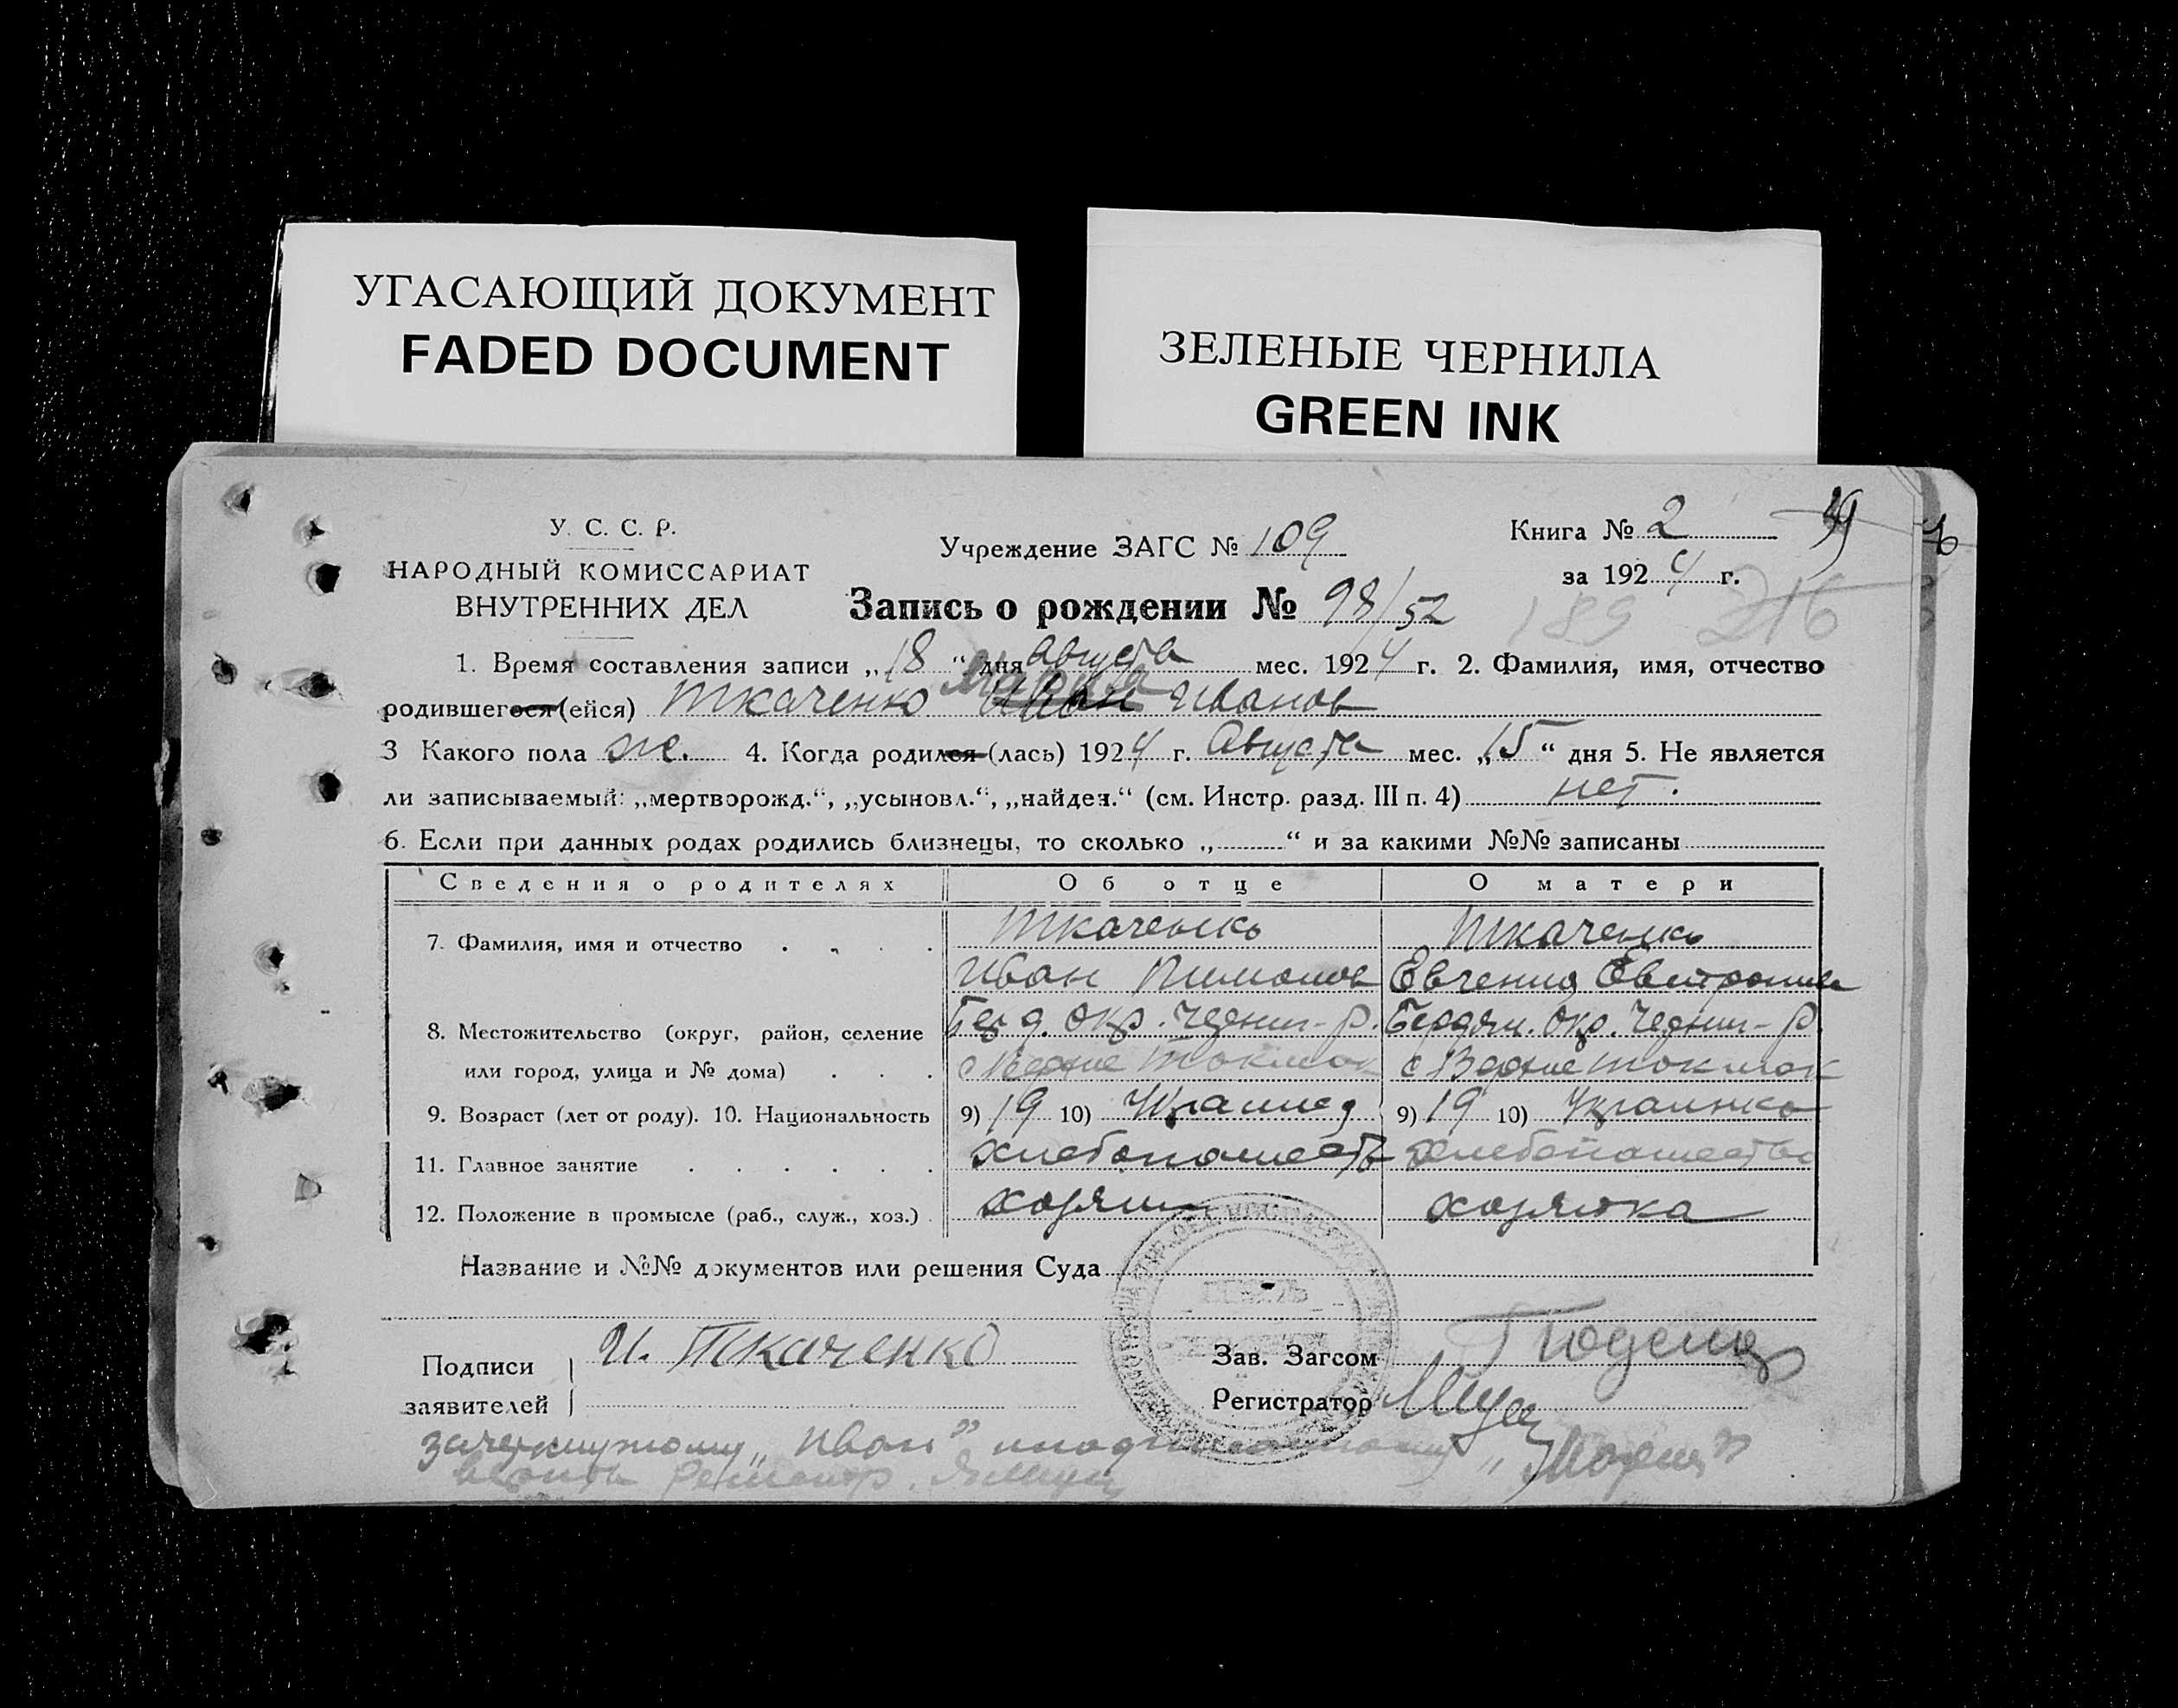 УГАСАЮЩИЙ ДОКУМЕНТ
FADED DOCUMENT
ЗЕЛЕНЫЕ ЧЕРНИЛА
GREEN INK
У. С. С. Р.
НАРОДНЫЙ КОМИССАРИАТ
ВНУТРЕННИХ ДЕЛ
Учреждение ЗАГС № 109
Книга № 2
за 1924 г.
Запись о рождении № 98/52
189 216
1. Время составления записи „18“ дня Августа мес. 1924 г. 2. Фамилия, имя, отчество
Мария
родившегося (ейся) Ткаченко Иван Иванов
3 Какого пола же. 4. Когда родился (лась) 1924 г. Августа мес. „15“ дня 5. Не является
ли записываемый: „мертворожд.“, „усыновл.“, „найден.“ (см. Инстр. разд. III п. 4) нет.
6. Если при данных родах родились близнецы, то сколько „ “ и за какими №№ записаны
Сведения о родителях Об отце О матери
7. Фамилия, имя и отчество Ткаченко Ткаченко
Иван Пимонов Евгения
8. Местожительство (округ, район, селение Берд. Окр. Черниг-р. Бердян. Окр. Черниг-р.
или город, улица и № дома) с Верхне Токмак с Верхне Токмак
9. Возраст (лет от роду). 10. Национальность 9) 19 10) Украинец 9) 19 10) Украинка
11. Главное занятие хлебопашеств хлебопашество
12. Положение в промысле (раб., служ., хоз.) хозяин хозяйка
Название и №№ документов или решения Суда
Подписи И. Ткаченко
заявителей
Зав. Загсом
Регистратор
зачеркнутому „Иван“ „Мария“